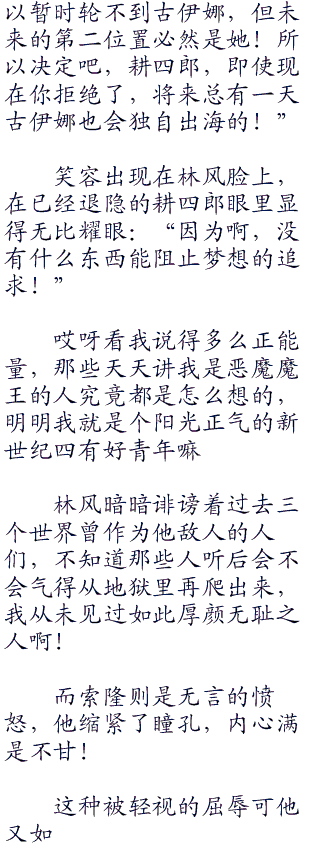 以暂时轮不到古伊娜，但未
来的第二位置必然是她！所
以决定吧，耕四郎，即使现
在你拒绝了，将来总有一天
古伊娜也会独自出海的！”
笑容出现在林风脸上，
在已经退隐的耕四郎眼里显
得无比耀眼：“因为啊，没
有什么东西能阻止梦想的追
求！”
哎呀看我说得多么正能
量，那些天天讲我是恶魔魔
王的人究竟都是怎么想的，
明明我就是个阳光正气的新
世纪四有好青年嘛
林风暗暗诽谤着过去三
个世界曾作为他敌人的人
们，不知道那些人听后会不
会气得从地狱里再爬出来，
我从未见过如此厚颜无耻之
人啊！
而索隆则是无言的愤
怒，他缩紧了瞳孔，内心满
是不甘！
这种被轻视的屈辱可他
又如